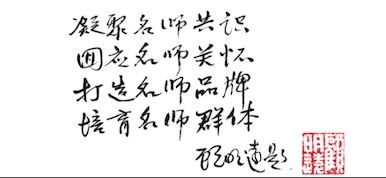 凝聚名师共识
回应名师关怀
打造名师品牌
培育名师群体
顾明远题